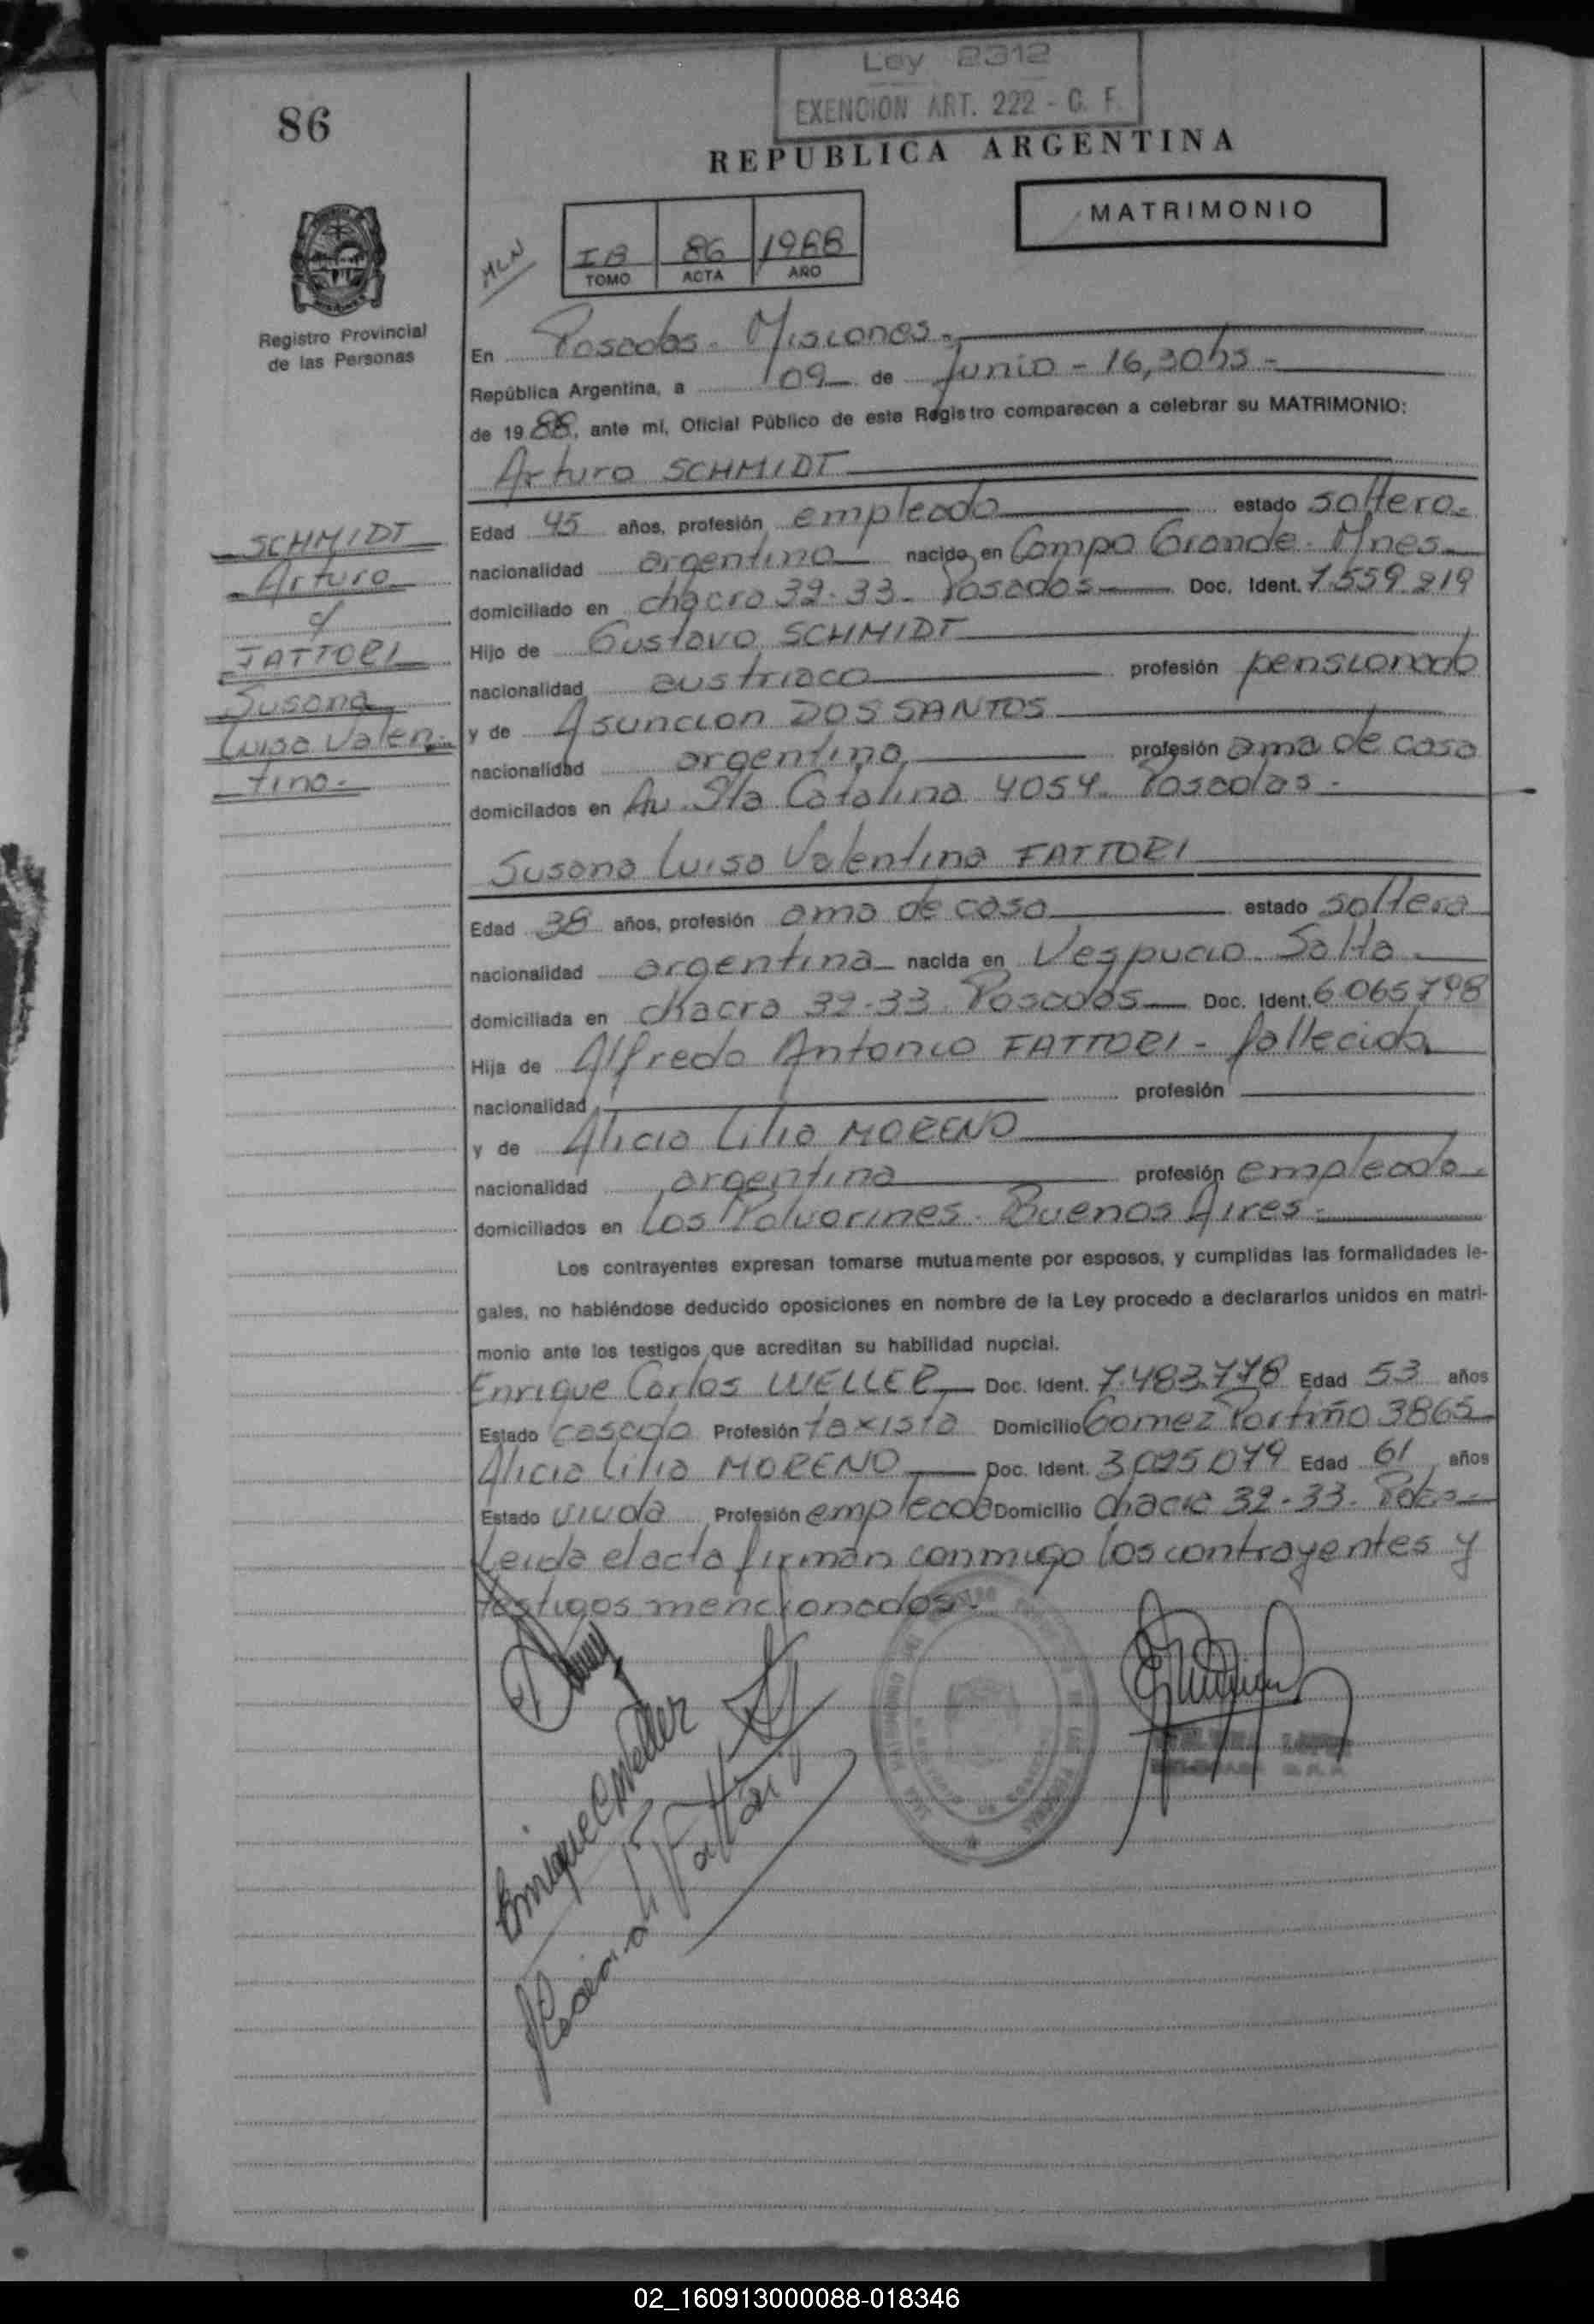 Ley 2312
EXENCION ART. 222 - C. F.
86
REPUBLICA ARGENTINA
MATRIMONIO
IB 86 1988
TOMO ACTA AÑO
Registro Provincial
de las Personas
En Posadas - Misiones -
República Argentina, a 09 de Junio - 16,30 hs -
de 1988, ante mí, Oficial Público de este Registro comparecen a celebrar su MATRIMONIO:
Arturo SCHMIDT
Edad 45 años, profesión empleado estado soltero -
nacionalidad argentino nacido en Campo Grande - Mnes
domiciliado en chacra 32-33 - Posadas Doc. Ident. 7.559.219
Hijo de Gustavo SCHMIDT
nacionalidad austriaco profesión pensionado
y de Asuncion DOS SANTOS
nacionalidad argentina profesión ama de casa
domicilados en Av. Sta Catalina 4054 - Posadas -
SCHMIDT
Arturo
c/
FATTORI
Susana
Luisa Valen-
tina -
Susana Luisa Valentina FATTORI
Edad 38 años, profesión ama de casa estado soltera
nacionalidad argentina nacida en Vespucio - Salta -
domiciliada en chacra 32-33 Posadas Doc. Ident. 6065798
Hija de Alfredo Antonio FATTORI - fallecido
nacionalidad profesión
y de Alicia Lilia MORENO
nacionalidad argentina profesión empleada -
domiciliados en Los Polvorines - Buenos Aires -
Los contrayentes expresan tomarse mutuamente por esposos, y cumplidas las formalidades le-
gales, no habiéndose deducido oposiciones en nombre de la Ley procedo a declararlos unidos en matri-
monio ante los testigos que acreditan su habilidad nupcial.
Enrique Carlos WELLER Doc. Ident. 7.483.778 Edad 53 años
Estado casado Profesión taxista Domicilio Gomez Portiño 3865
Alicia Lilia MORENO Doc. Ident. 3.025.079 Edad 61 años
Estado viuda Profesión empleada Domicilio chacra 32-33 - Pdas -
Leida el acta firman conmigo los contrayentes y
testigos mencionados -
Enrique C Weller
Fattori
LOPEZ
02_160913000088-018346